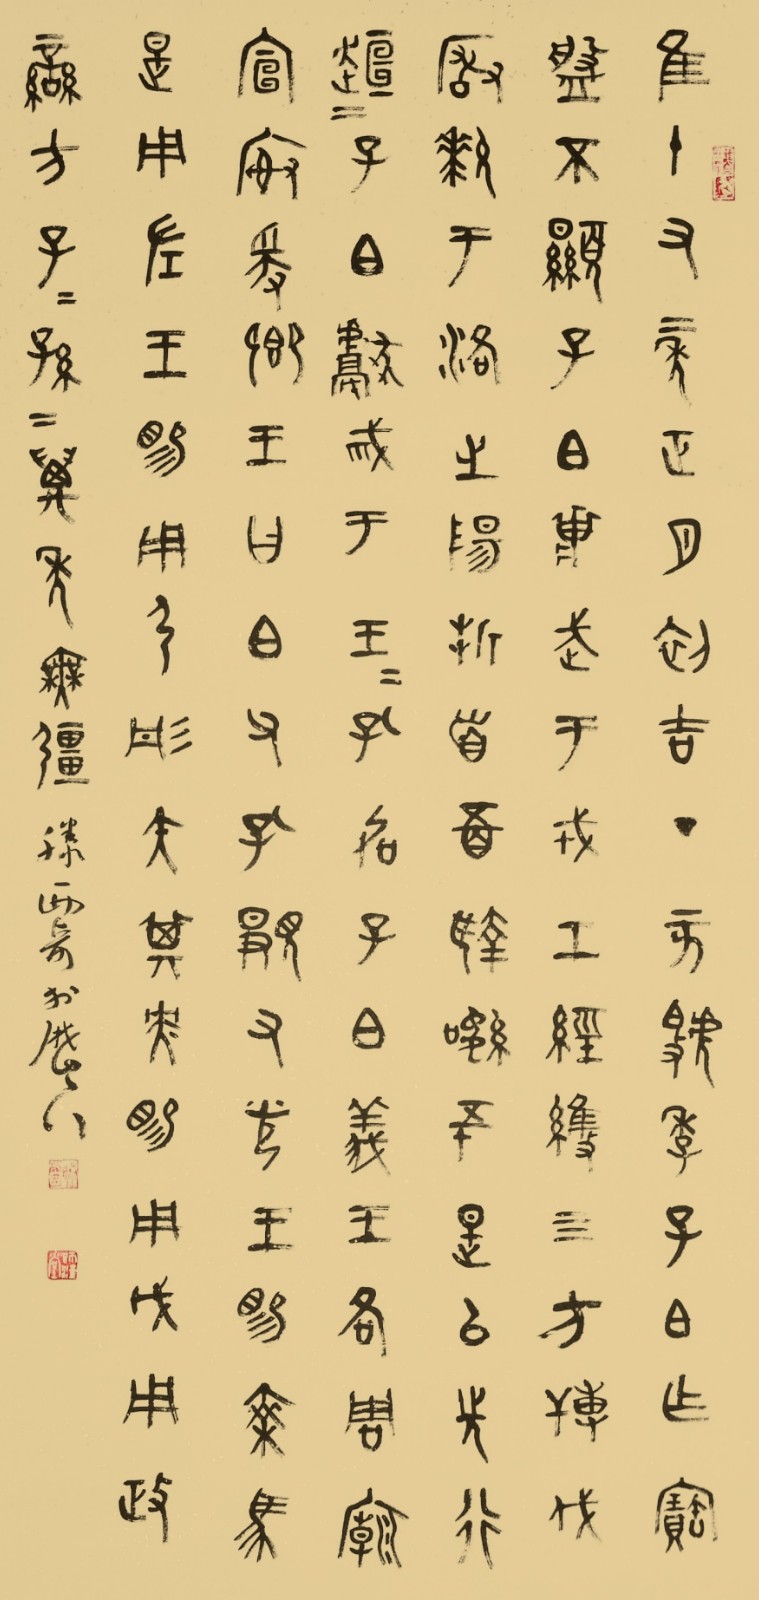 隹十又二年正月初吉丁亥虢季子白乍寶
盤不顯子白壯武于戎工經維四方搏伐
厰狁于洛之陽折首五百執訊五十是以先行
趄=子白獻馘于王=孔加子白義王各周廟
宣榭爰鄉王曰白父孔顯又光王賜乘馬
是用左王賜用弓彤矢其央賜用戉用政
蠻方子=孫=萬年無疆 滕西奇於歷下